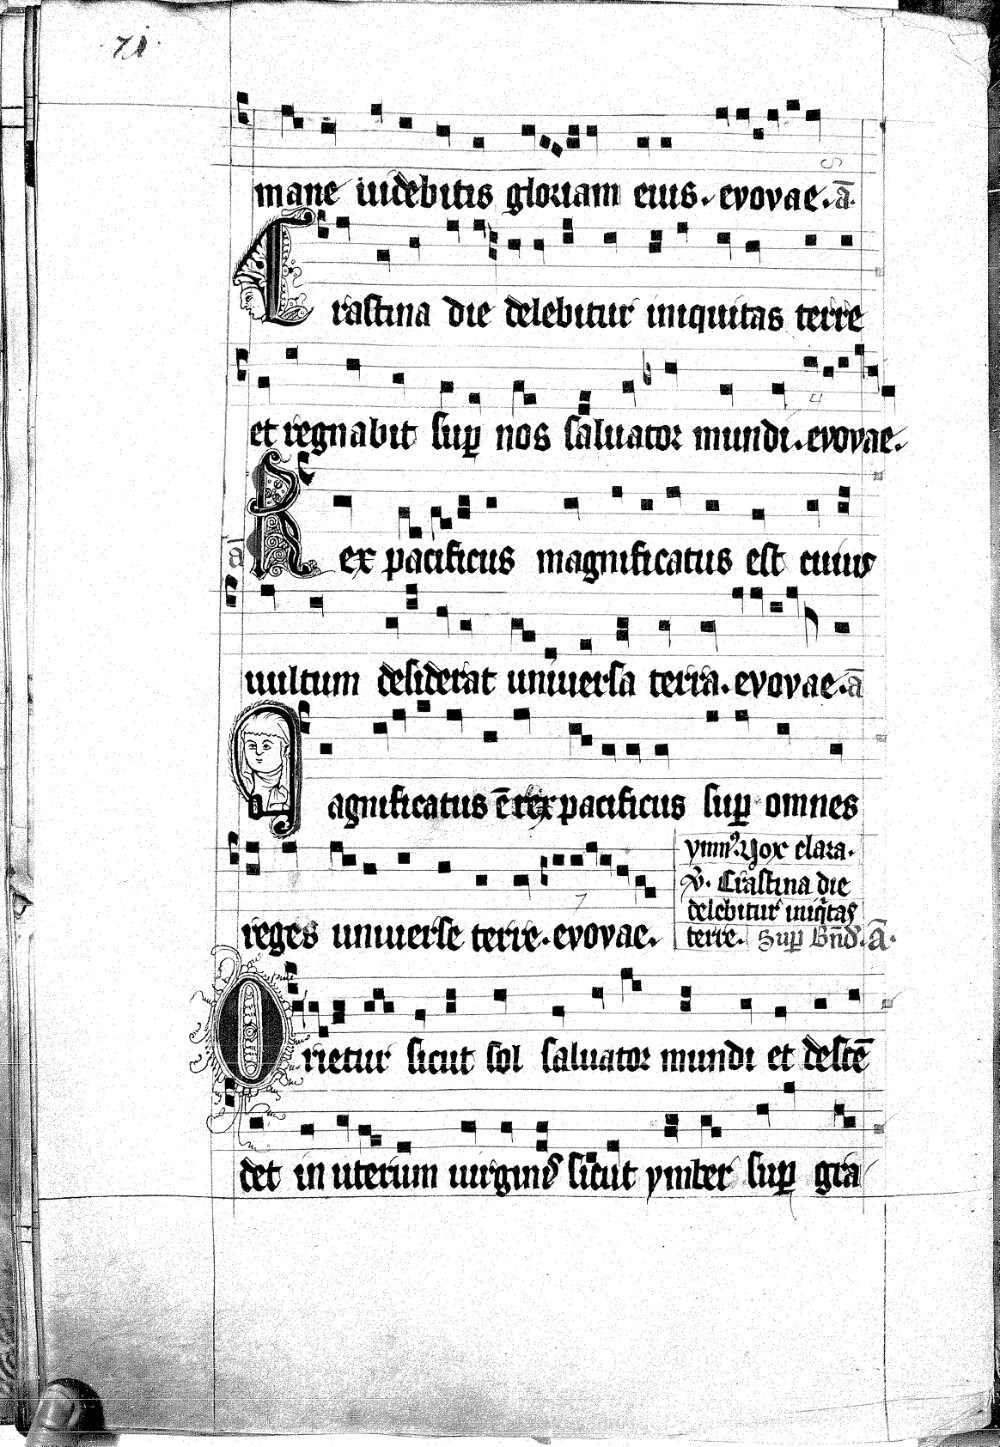 71.
mane uidebitis gloriam eius. evovae. ā.
Crastina die delebitur iniquitas terre
et regnabit sup nos saluator mundi. evovae.
ā Rex pacificus magnificatus est cuius
uultum desiderat uniuersa terra. evovae. ā
Magnificatus ē rex pacificus sup omnes
ymnꝰ. Vox clara.
℣. Crastina die
delebitur iniqͣtas
terre. Sup Bnd̄. ā.
reges uniuerse terre. evovae.
Orietur sicut sol saluator mundi et descē
det in uterum uirginis sicut ymber sup gra